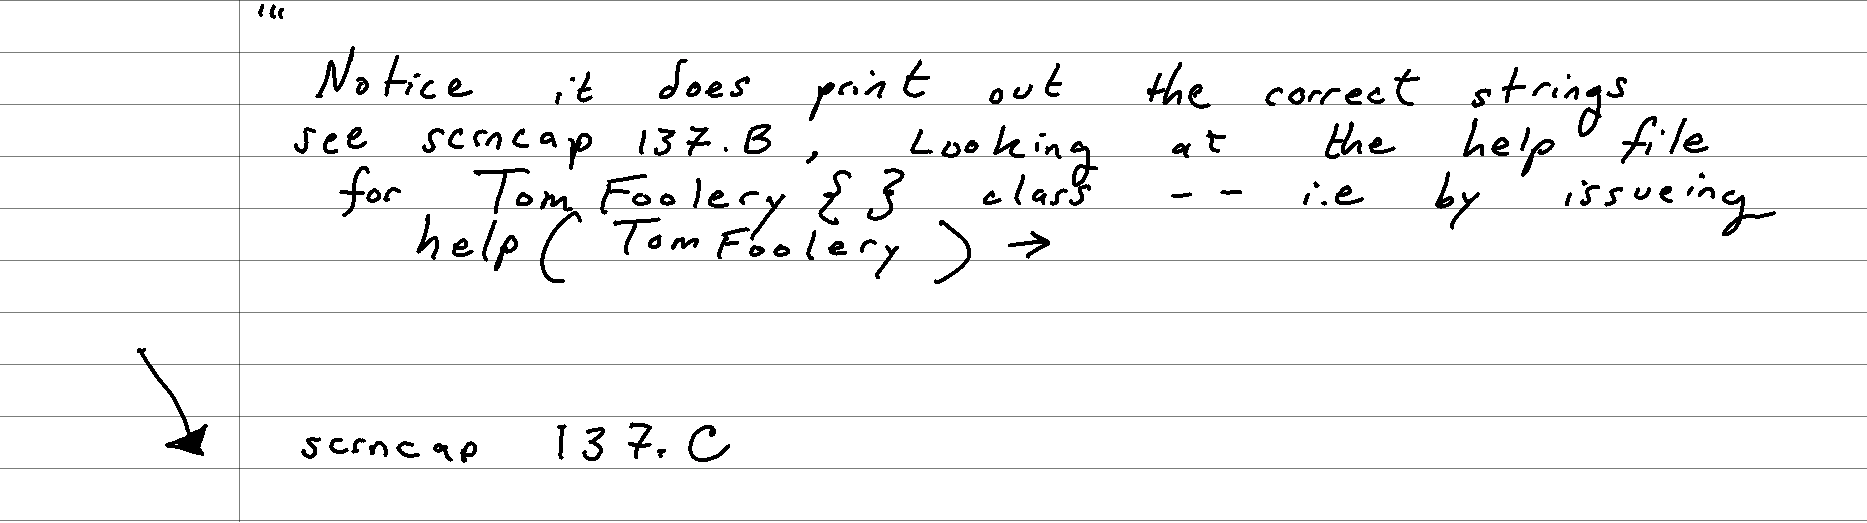 '''
Notice it does print out the correct strings
see scrncap 137.B, Looking at the help file
for TomFoolery { } class -- i.e by issueing
help( TomFoolery ) →
scrncap 137.C